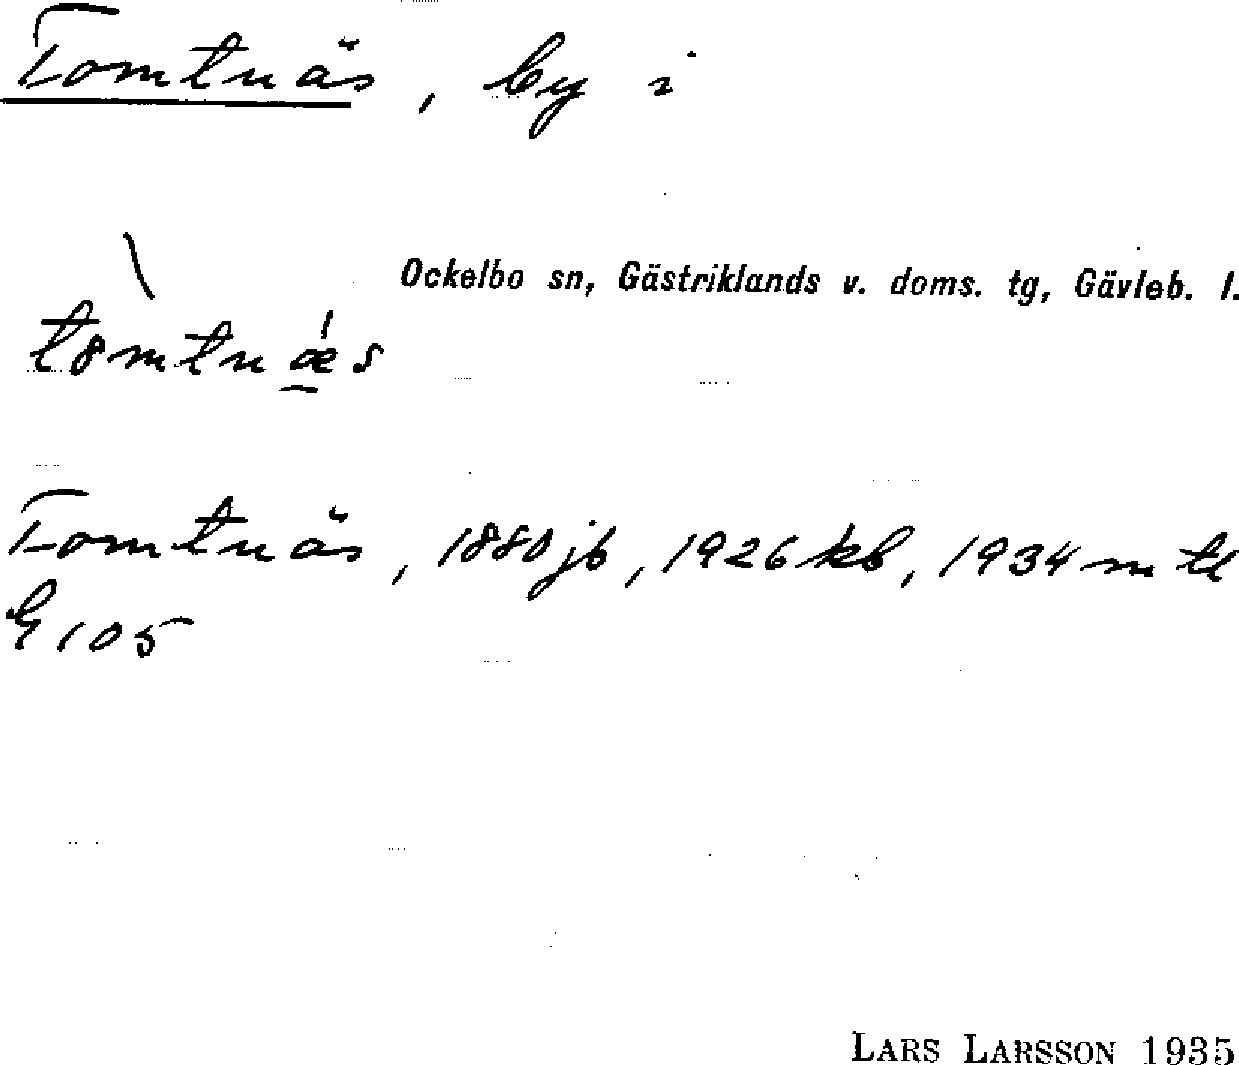 Tomtnäs, by i
Ockelbo sn, Gästriklands v. doms. tg, Gävleb. l.
tomtnæs
Tomtnäs, 1880 jb, 1926 kb, 1934 mtl
G 105
LARS LARSSON 1935